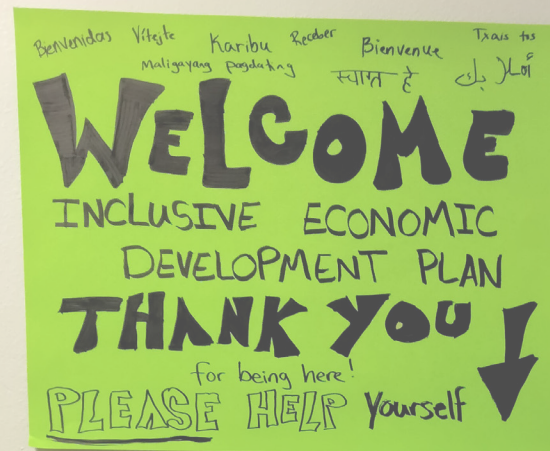 Bienvenidas Vítejte Karibu Receber Bienvenue
Maligayang pagdating स्वागत है أهلا بك
WELCOME
INCLUSIVE ECONOMIC
DEVELOPMENT PLAN
THANK YOU
for being here!
PLEASE HELP yourself